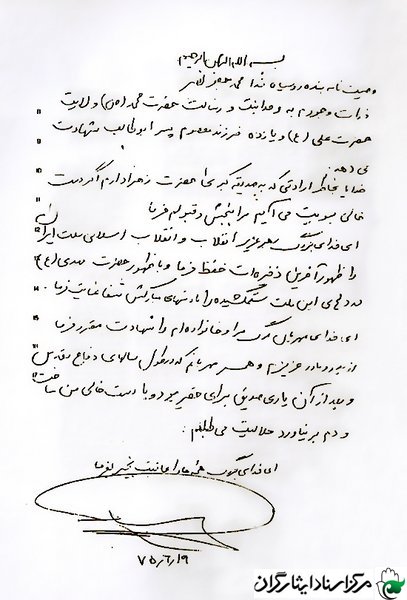 بسم الله الرحمن الرحیم
وصیت نامه بنده روسیاه خدا محمد جعفر
ذرات وجودم به وحدانیت و رسالت حضرت محمد (ص) و ولایت
حضرت علی (ع) و یازده فرزند معصوم پسر ابوطالب شهادت
می دهد.
خدایا بخاطر ارادتی که به صدیقه کبری حضرت زهرا دارم اگر دست
خالی بسویت می آیم مرا ببخش و قبولم فرما
ای خدای بزرگ رهبر عزیز انقلاب و انقلاب اسلامی ملت ایران
را ظهور آفرین ذخره ات حفظ فرما و با ظهور حضرت مهدی (عج)
دردهای این ملت ستمکشیده را با دستهای مبارکش شفا عنایت فرما
ای خدای مهربان مرگ مرا و خانواده ام را شهادت مقرر فرما
از پدر و مادر عزیزم و همسر مهربانم که در طول سالهای دفاع مقدس
و بعد از آن یاری صدیق برای حقیر بود و با دست خالی من ساخت
و دم بر نیاورد حلالیت می طلبم.
ای خدای بزرگ همه ما را عاقبت بخیر بفرما
۷۵/۶/۹
مرکز اسناد ایثارگران